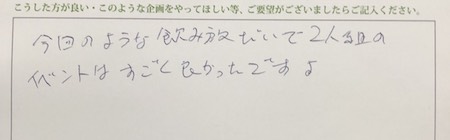 こうした方が良い・このような企画をやってほしい等、ご要望がございましたらご記入ください。
今回のような飲み放だいで2人組の
イベントはすごく良かったですよ